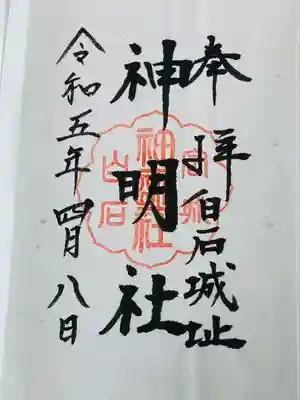 奉拝 白石城址
神明社
令和五年四月八日
神明社